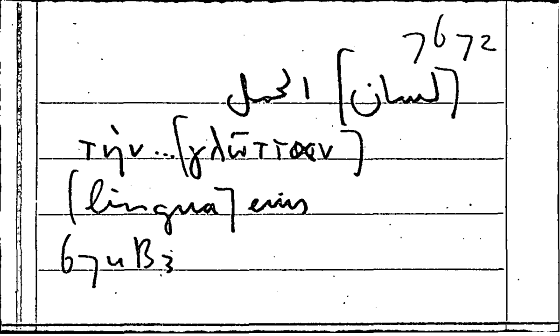 7672
[لسان]
τὴν...[γλῶτταν]
[lingua] eius
67uB3